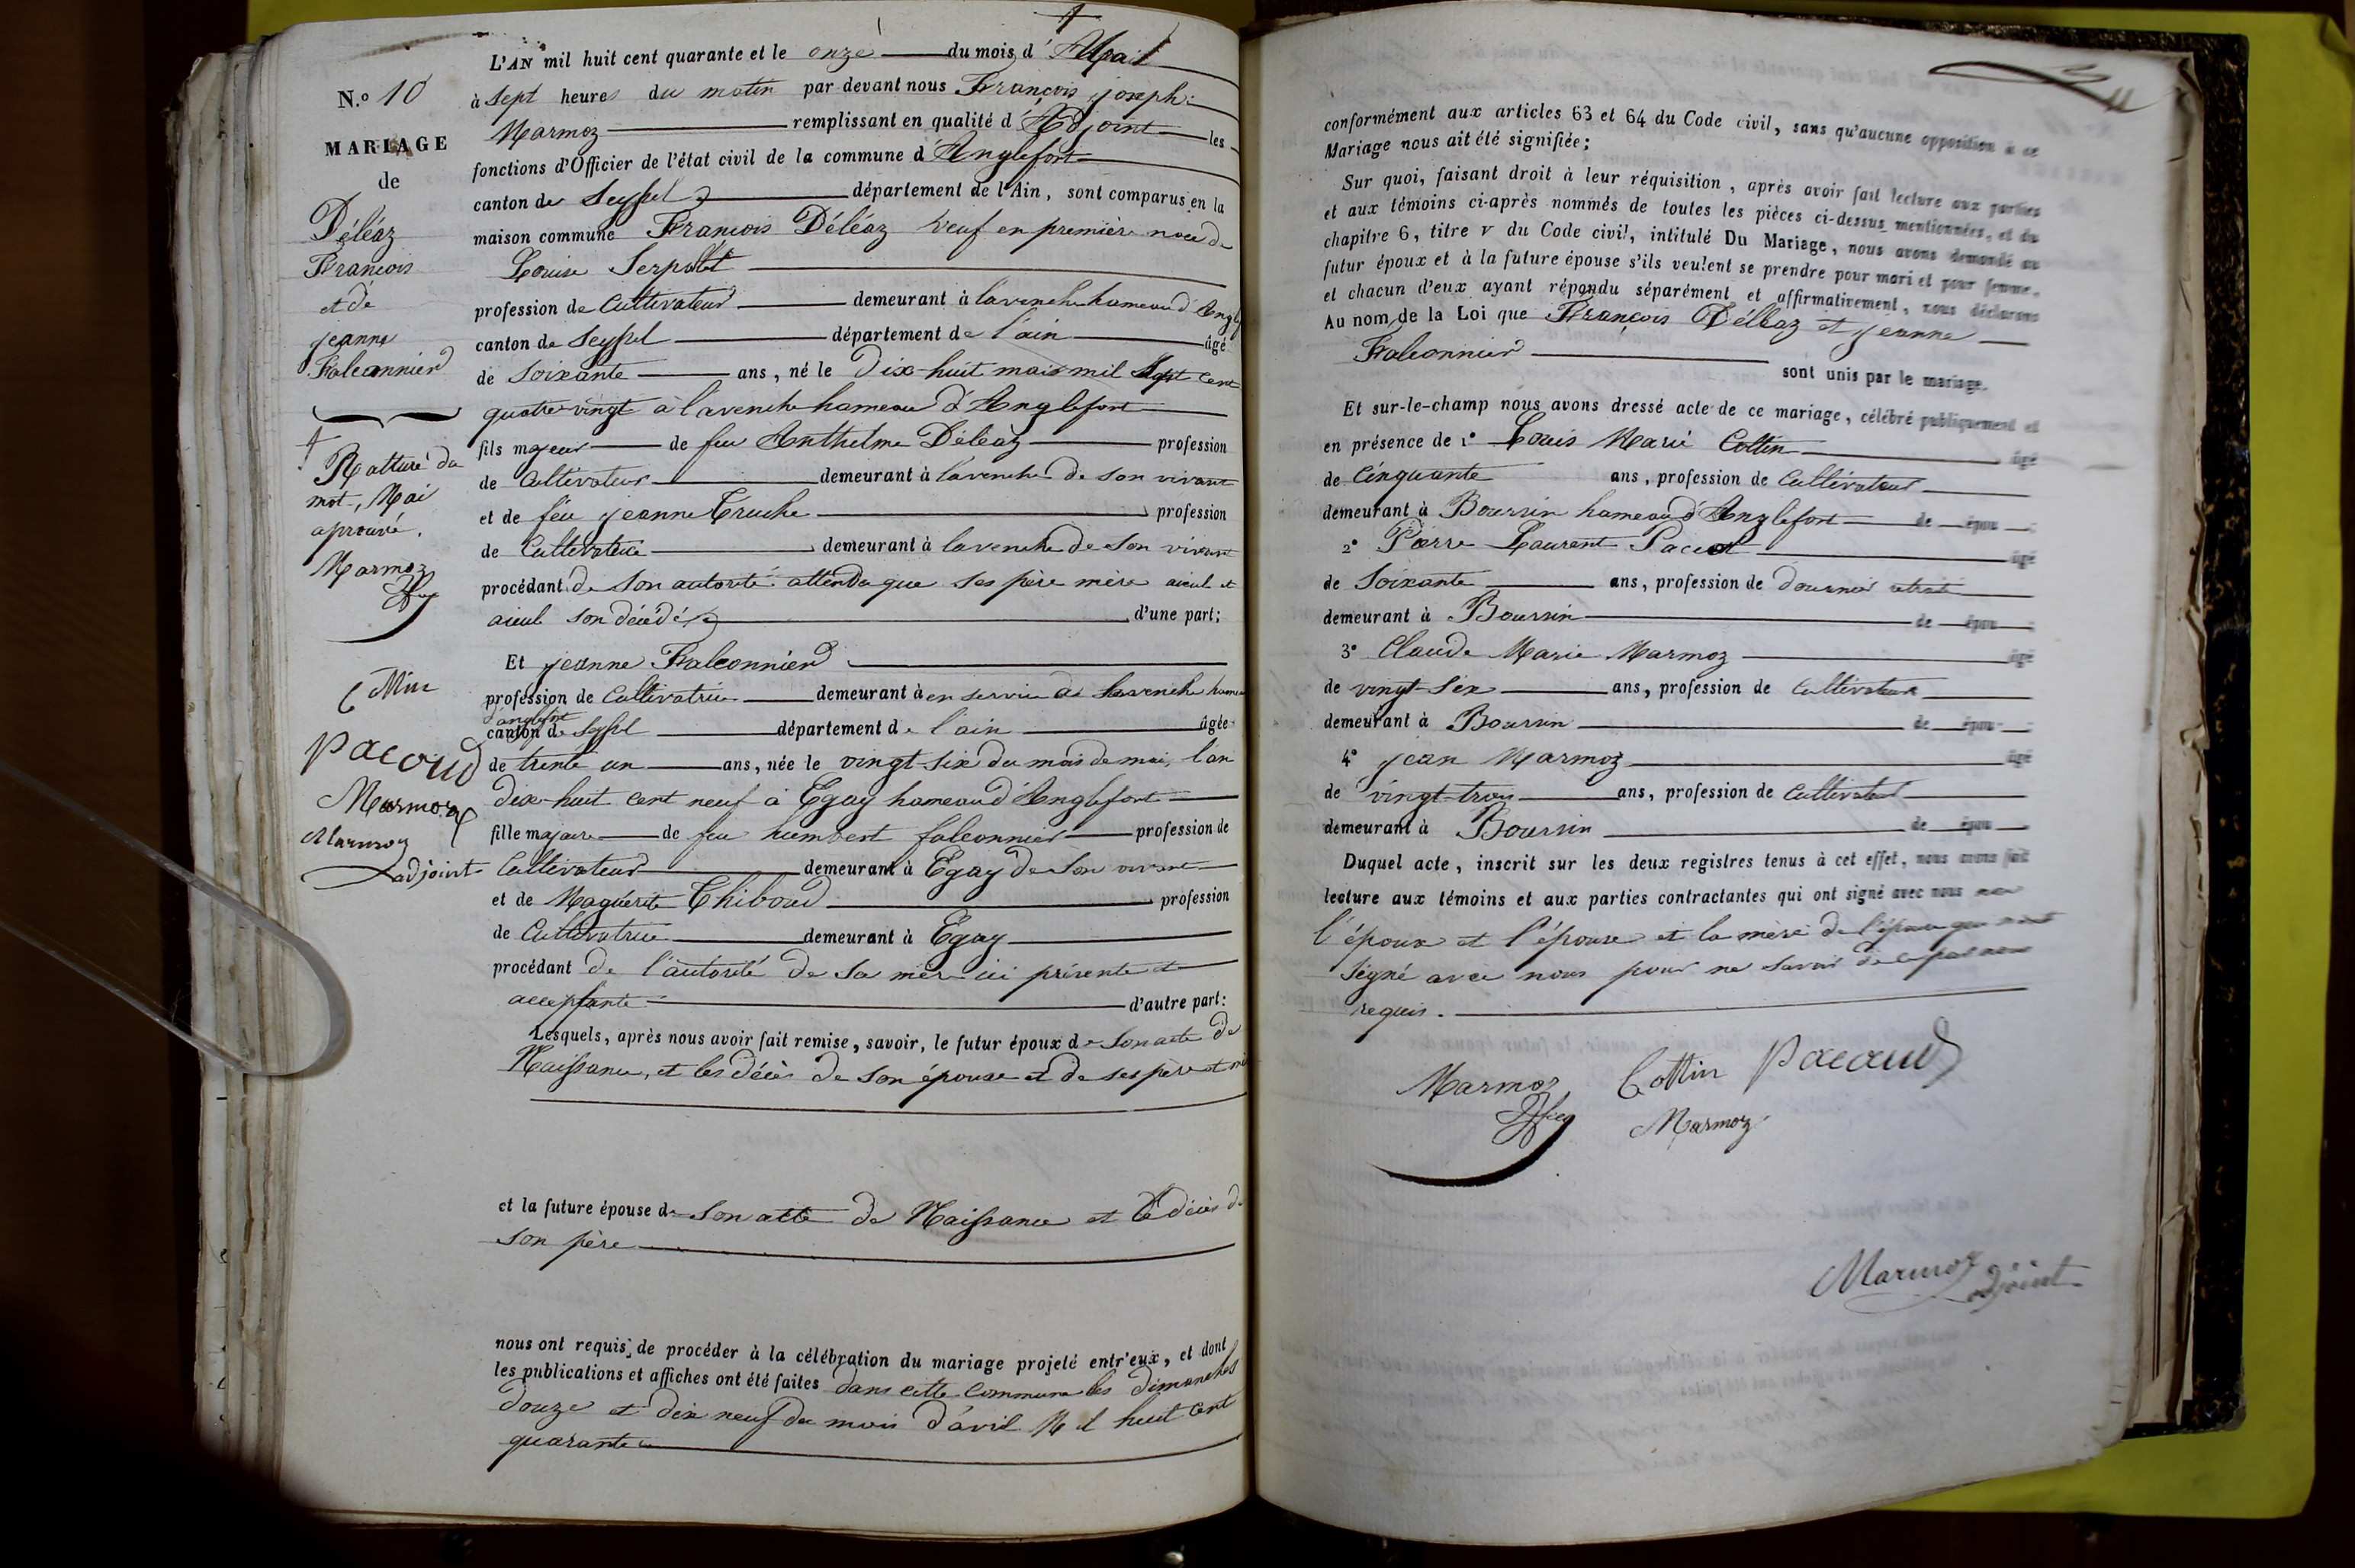 N.o 10
MARIAGE
de
Déléaz
François
et de
jeanne
Falconnier
Ratturé du
mot, Mai
aprouvé.
Marmoz
Pacoud
Marmoz
Marmoz
adjoint
L'AN mil huit cent quarante et le onze du mois d'
à sept heures du matin par devant nous François joseph
Marmoz remplissant en qualité d'Adjoint les
fonctions d'Officier de l'état civil de la commune d'Anglefort
canton de Seyssel département de l'Ain, sont comparus en la
maison commune François Déléaz veuf en première noce de
Louise Serpolet
profession de Cultivateur demeurant à lavenche hameau d'Angle
canton de Seyssel département de l'ain âgé
de Soixante ans, né le Dix-huit mais mil Sept Cent
quatre vingt à l'avenche hameau d'Anglefort
fils majeur de feu Anthelme Déléaz profession
de Cultivateur demeurant à lavenche de son vivant
et de feu jeanne Truche profession
de Cultivatrice demeurant à lavenche de son vivant
procédant de son autorité attendu que ses père mère aieul et
aieul son décédés d'une part;
Et jeanne Falconnier
profession de Cultivatrice demeurant à en service à lavenche hame
d'anglefort
canton de Seyssel département de l'ain âgée
de trente un ans, née le vingt-six du mois de mai, l'an
dix-huit cent neuf à Egay hameau d'Anglefort
fille majeure de feu humbert falconnier profession de
Cultivateur demeurant à Egay de son vivant
et de Maguerite Thiboud profession
de Cultivatrice demeurant à Egay
procédant de l'autorité de sa mère ici présente et
acceptante d'autre part:
Lesquels, après nous avoir fait remise, savoir, le futur époux de son acte de
Naissance, et les décès de son épouse et de ses père et mè
et la future épouse de son acte de Naissance et le décès de
son père
nous ont requis de procéder à la célébration du mariage projeté entr'eux, et dont
les publications et affiches ont été faites dans cette commune les dimanches
douze et dix neuf du mois d'avril Mil huit cent
quarante
conformément aux articles 63 et 64 du Code civil, sans qu'aucune opposition à ce
Mariage nous ait été signifiée;
Sur quoi, faisant droit à leur réquisition, après avoir fait lecture aux parties
et aux témoins ci-après nommés de toutes les pièces ci-dessus mentionnées, et du
chapitre 6, titre v du Code civil, intitulé Du Mariage, nous avons demandé au
futur époux et à la future épouse s'ils veulent se prendre pour mari et pour femme,
et chacun d'eux ayant répondu séparément et affirmativement, nous déclarons
Au nom de la Loi que François Déléaz et jeanne
Falconnier sont unis par le mariage.
Et sur-le-champ nous avons dressé acte de ce mariage, célébré publiquement et
en présence de 1° Louis Marie Cottin âgé
de Cinquante ans, profession de Cultivateur
demeurant à Boursin hameau d'Anglefort de épou
2° Pierre Laurent âgé
de Soixante ans, profession de
demeurant à Boursin de épou
3° Claude Marie Marmoz âgé
de vingt-six ans, profession de Cultivateur
demeurant à Boursin de épou
4° jean Marmoz âgé
de vingt-trois ans, profession de Cultivateur
demeurant à Boursin de épou
Duquel acte, inscrit sur les deux registres tenus à cet effet, nous avons fait
lecture aux témoins et aux parties contractantes qui ont signé avec nous non
l'époux et l'épouse et la mère de l'épouse qui n'ont
signé avec nous pour ne savoir de ce par nous
requis.
Marmoz Cottin Pacoud
Marmoz
Marmoz
adjoint